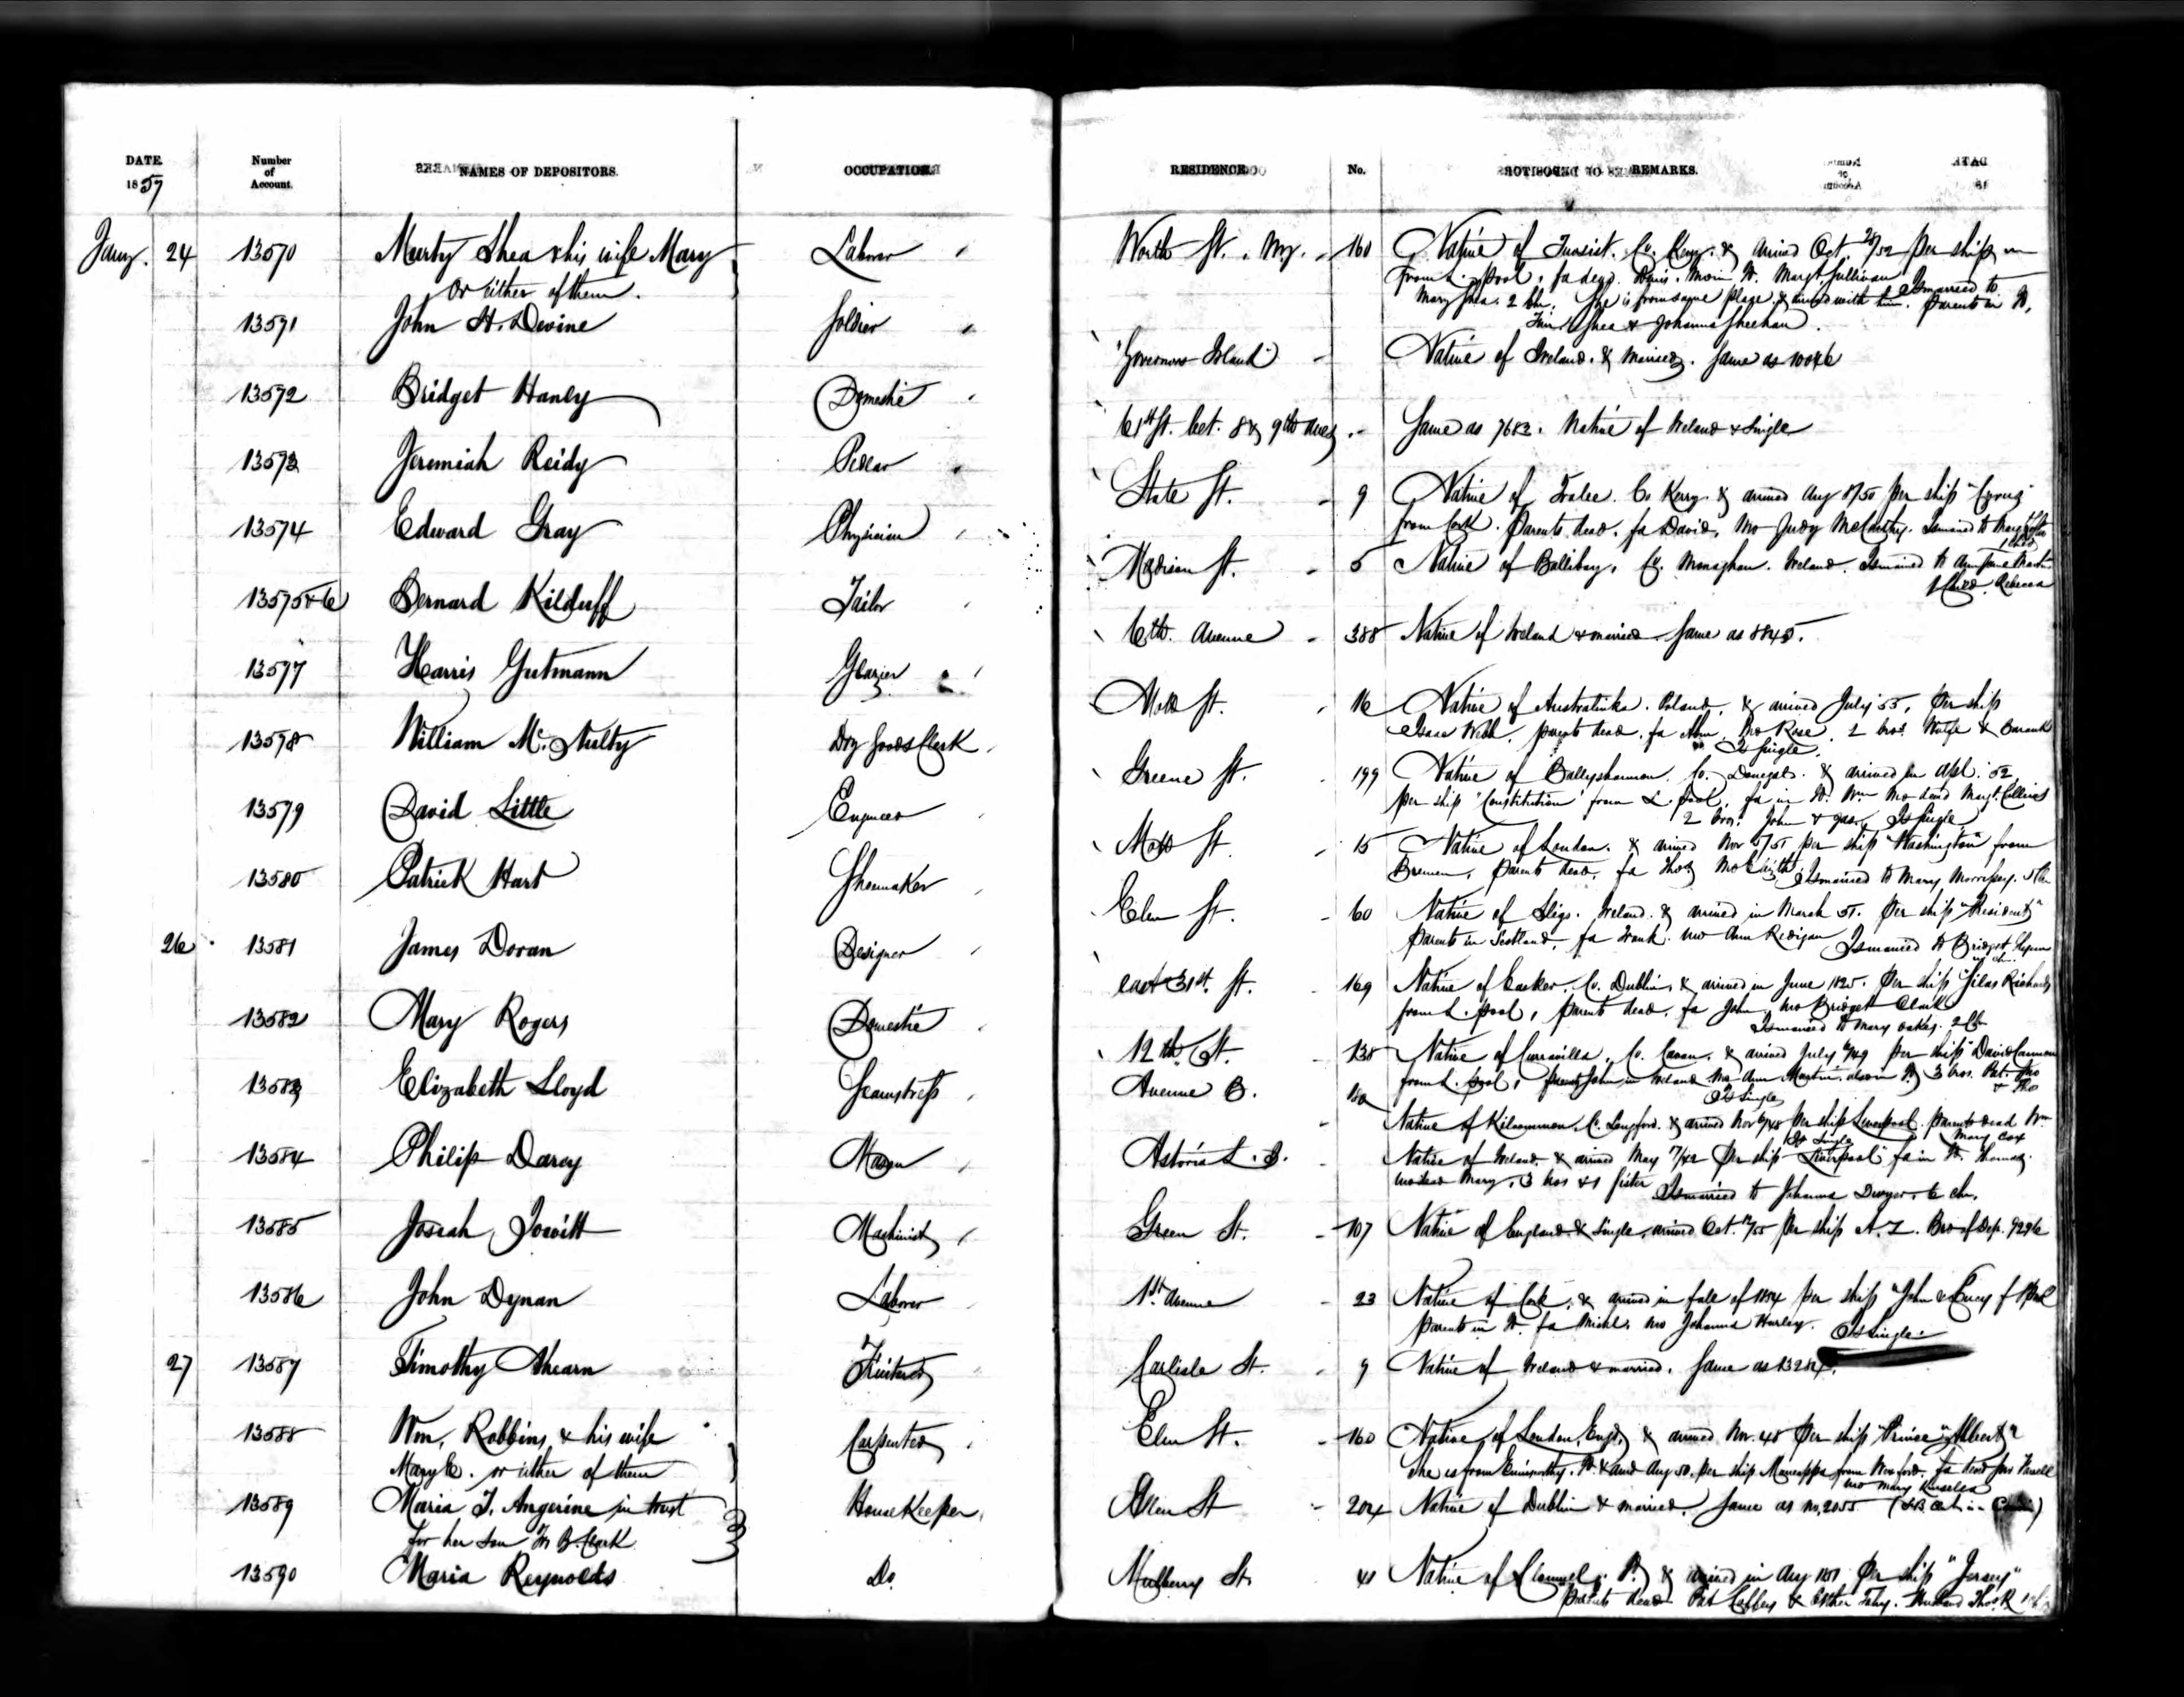 DATE 1857
Number of Account.
NAMES OF DEPOSITORS.
OCCUPATION.
RESIDENCE.
No.
REMARKS.
Jany. 24 13570 Murty Shea & his wife Mary Laborer Worth St. N.Y. 160 Native of Co. Kerry & arrived Oct. 28/52 per ship
or either of them. From L.pool. fa dead. Denis. Mo in Margt. Sullivan Is married to
Mary Shea. 2 chn. She is from same place & arrived with him. Parents in
Shea & Johanna Sheehan.
13571 John H. Devine Soldier "Governors Island" Native of Ireland. & married. Same as 10046
13572 Bridget Hanly Domestic 61st St. bet. 8 & 9th Aves. Same as 7683. Native of Ireland & Single
13573 Jeremiah Reidy Pedlar State St. 9 Native of Tralee. Co Kerry. & arrived Aug 8/50 per ship
from Cork. Parents dead. fa David, Mo Judy McCarthy. Is married to Mary
13574 Edward Gray Physician Madison St. 5 Native of Ballibay, Co. Monaghan. Ireland. Is married to Ann Jane Martin
1 child. Rebecca
13575 & 6 Bernard Kilduff Tailor 6th. Avenue 388 Native of Ireland & married. Same as 8845.
13577 Harris Gutmann Glazier Mott St. 16 Native of Poland, & arrived July 55, per ship
Isaac Webb. parents dead, fa Abm, Mo Rose. 2 bros. Wolfe &
Is single.
13578 William McNulty Dry Goods Clerk Greene St. 199 Native of Ballyshannon. Co. Donegal. & arrived in Apl. 52
per ship "Constitution" from L.pool, fa in Wm Mo dead Margt. Collins
2 bros. John & Jas. Is Single
13579 David Little Engineer Mott St. 15 Native of London. & arrived Nov 6/51 per ship "Washington" from
Bremen, parents dead, fa Thos. Mo Is married to Mary Morrissey.
13580 Patrick Hart Shoemaker Elm St. 60 Native of Sligo. Ireland. & arrived in March 51. per ship "President"
parents in Scotland, fa Frank. mo Ann Redigan Is married to Bridget
26 13581 James Doran Designer east 31st. St. 169 Native of Esker. Co. Dublin, & arrived in June 1825. Per ship "Silas Richards
from L.pool, parents dead. fa John, mo Bridget Clark
Is married to Mary Oakes. 2 Ch
13582 Mary Rogers Domestic 12th St. 138 Native of Co. Cavan. & arrived July /49 per ship "David Cannon
from L.pool, John in Ireland Mo Ann Martin. also in 3 bros. Pat.
Is Single
13583 Elizabeth Lloyd Seamstress Avenue B. Native of Kilcommon, Co. Longford. & arrived Nov 6/48 per ship Liverpool. parents dead Wm
Is Single Mary Cox
13584 Philip Darcy Mason Astoria L.I. Native of Ireland. & arrived May 17/42 per ship Liverpool fa in Thomas.
mo dead Mary. 3 bros & 1 sister Is married to Johanna Dwyer. 6 chn.
13585 Josiah Jowitt Machinist Green St. 107 Native of England & Single, arrived Oct. /55 per ship A.Z. Bro of Dep. 9296
13586 John Dynan Laborer 1st. Avenue 23 Native of Cork, & arrived in fall of 1854 per ship "John & Lucy f Lpool
parents in fa Michl. mo Johanna Hurley. Is Single
27 13587 Timothy Ahearn Carlisle St. 9 Native of Ireland & married. Same as 13284.
13588 Wm. Robbins & his wife Carpenter Elm St. 160 Native of London, Engd. & arrived Nov. 48 per ship "Prince Albert"
Mary E. or either of them She is from Enniscorthy, & arrd Aug 50. per ship from Wexford. fa dead
mo Mary Kinsella
13589 Maria T. Angerine in trust HouseKeeper Allen St 204 Native of Dublin & married. Same as no. 2055
for her Son B. Clark
13590 Maria Reynolds Do. Mulberry St. 41 Native of Clonmel, & arrived in Aug 1851 per ship "Jersey"
parents dead. Pat Caffery & Esther Fahy. Husband Thos. R.